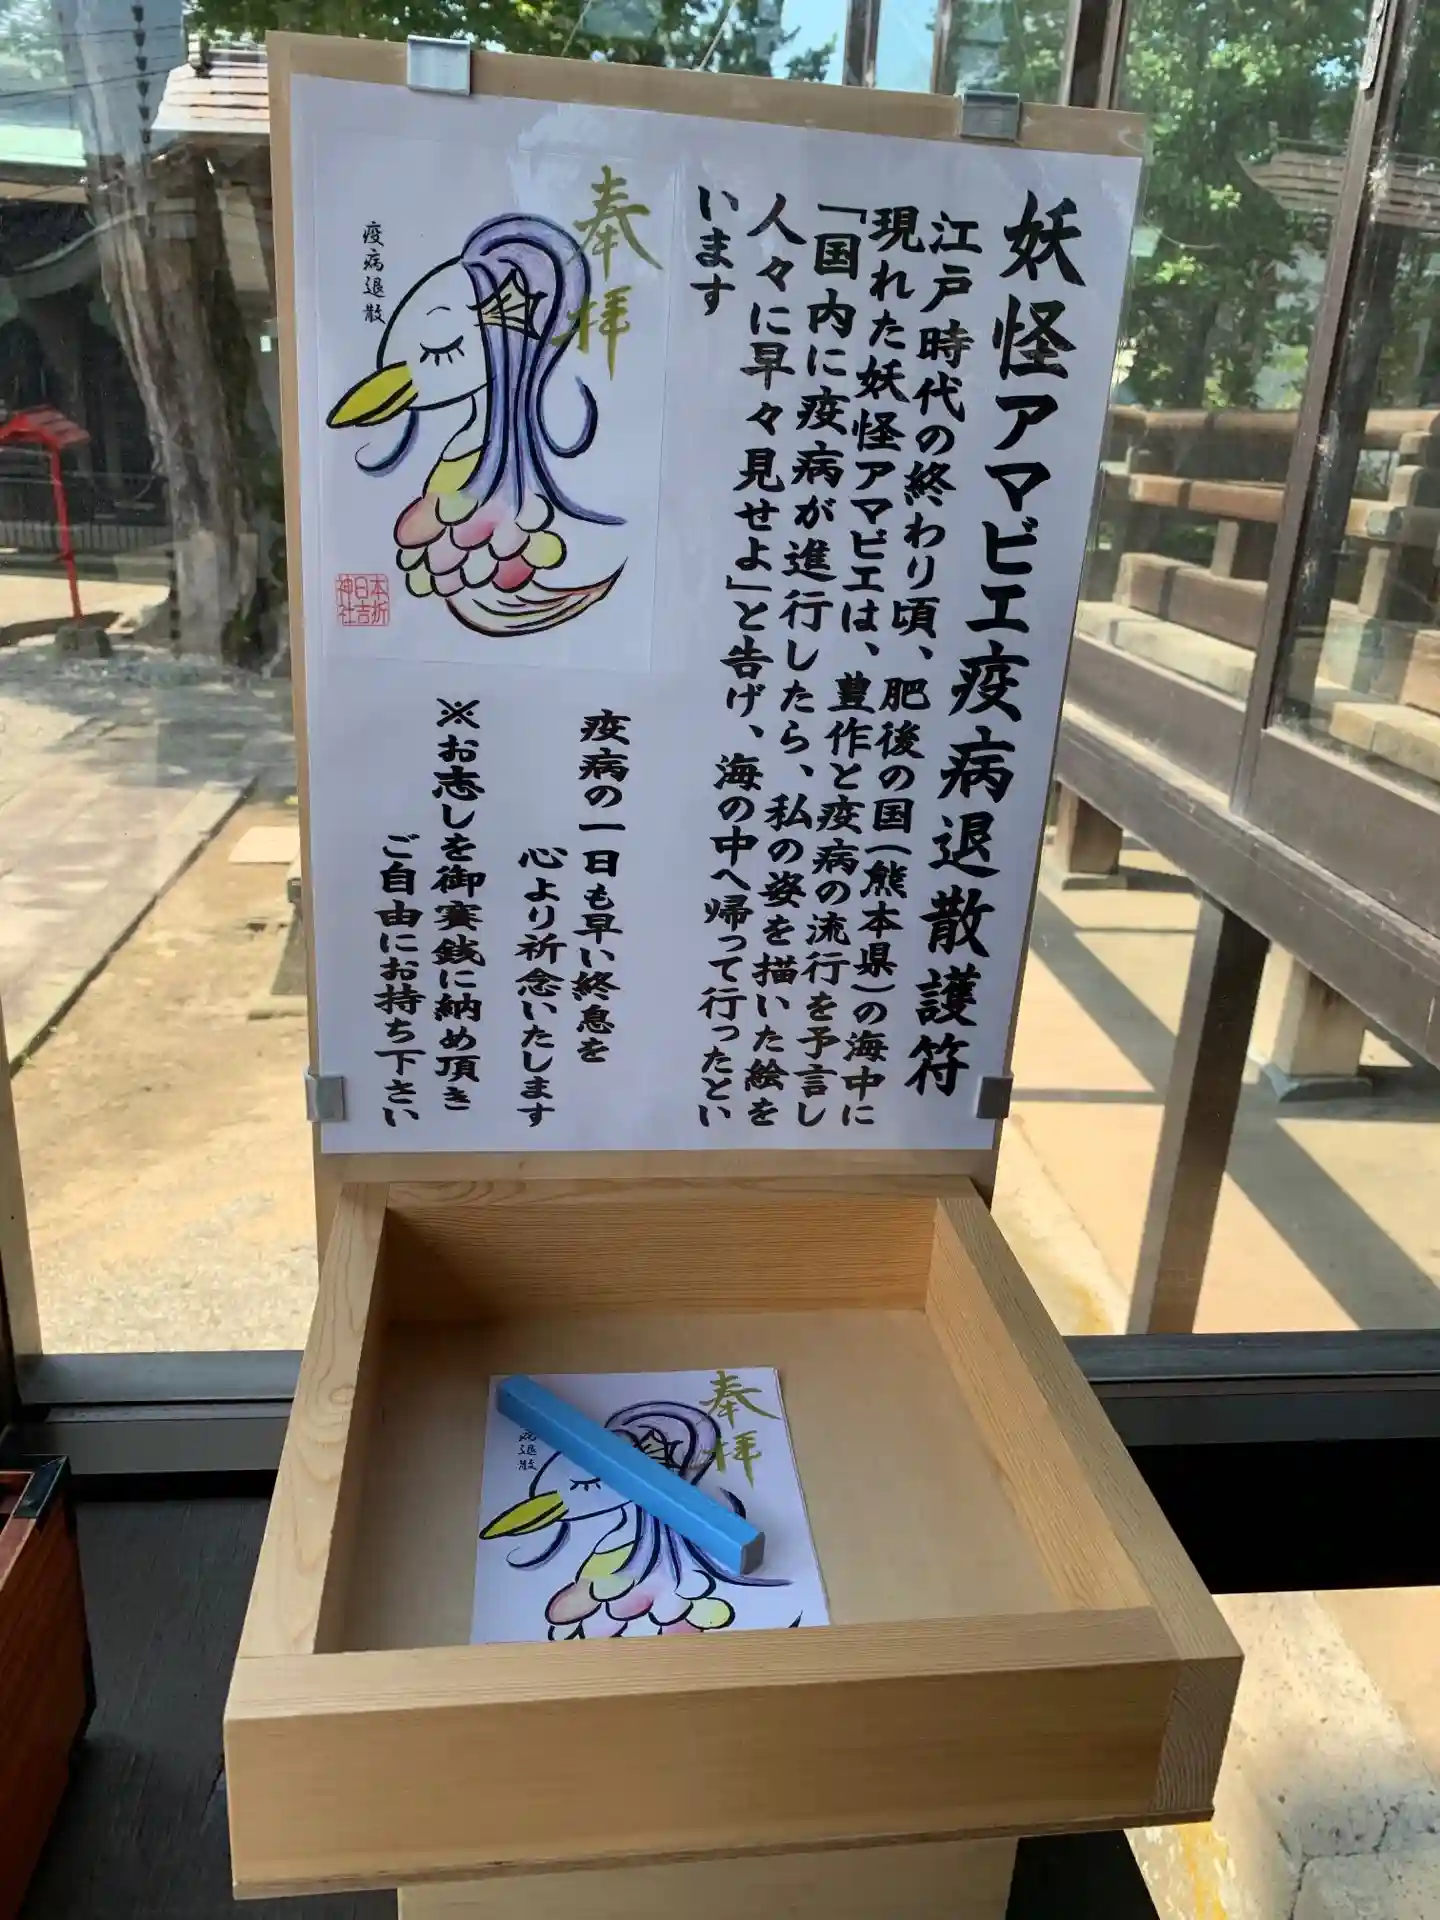 妖怪アマビエ疫病退散護符
江戸時代の終わり頃、肥後の国(熊本県)の海中に
現れた妖怪アマビエは、豊作と疫病の流行を予言し
「国内に疫病が進行したら、私の姿を描いた絵を
人々に早々見せよ」と告げ、海の中へ帰って行ったとい
います
奉拝
疫病退散
本折
日吉
神社
疫病の一日も早い終息を
心より祈念いたします
※お志しを御賽銭に納め頂き
ご自由にお持ち下さい
奉拝
病退散